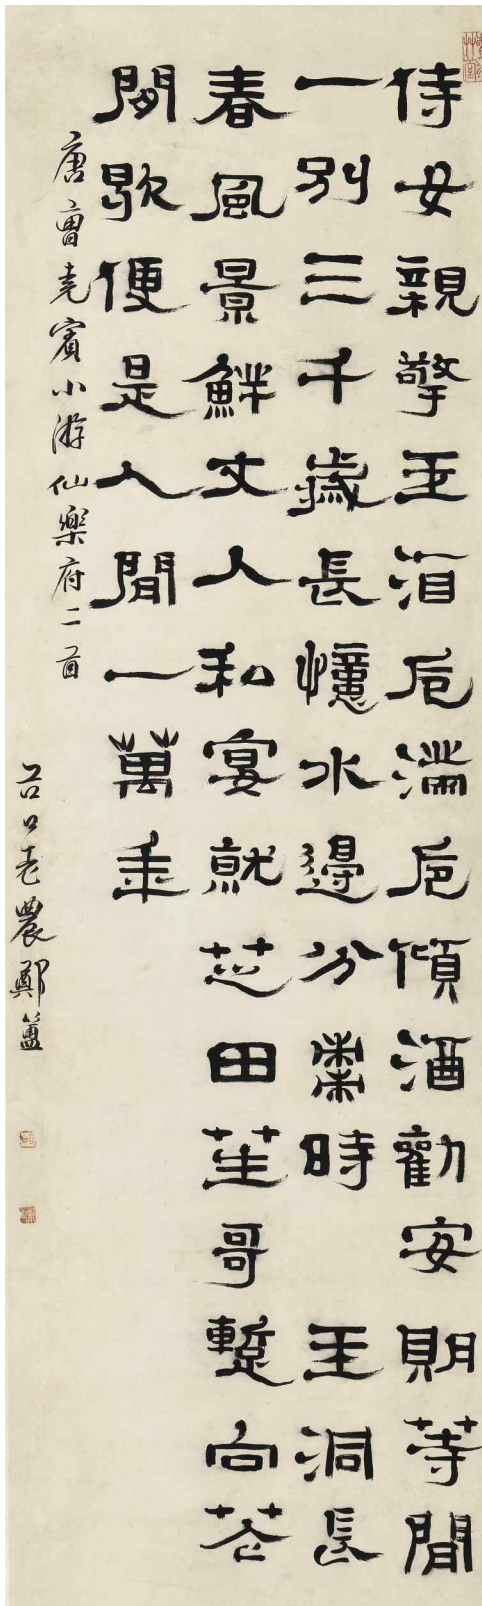 侍女親擎玉酒卮滿卮傾酒勸安期等閒
一別三千歲長憶水邊分棗時 玉洞長
春風景鮮丈人私宴就芝田笙哥蹔向花
間歇便是人間一萬年
唐曹堯賓小游仙樂府二首
谷口老農鄭簠